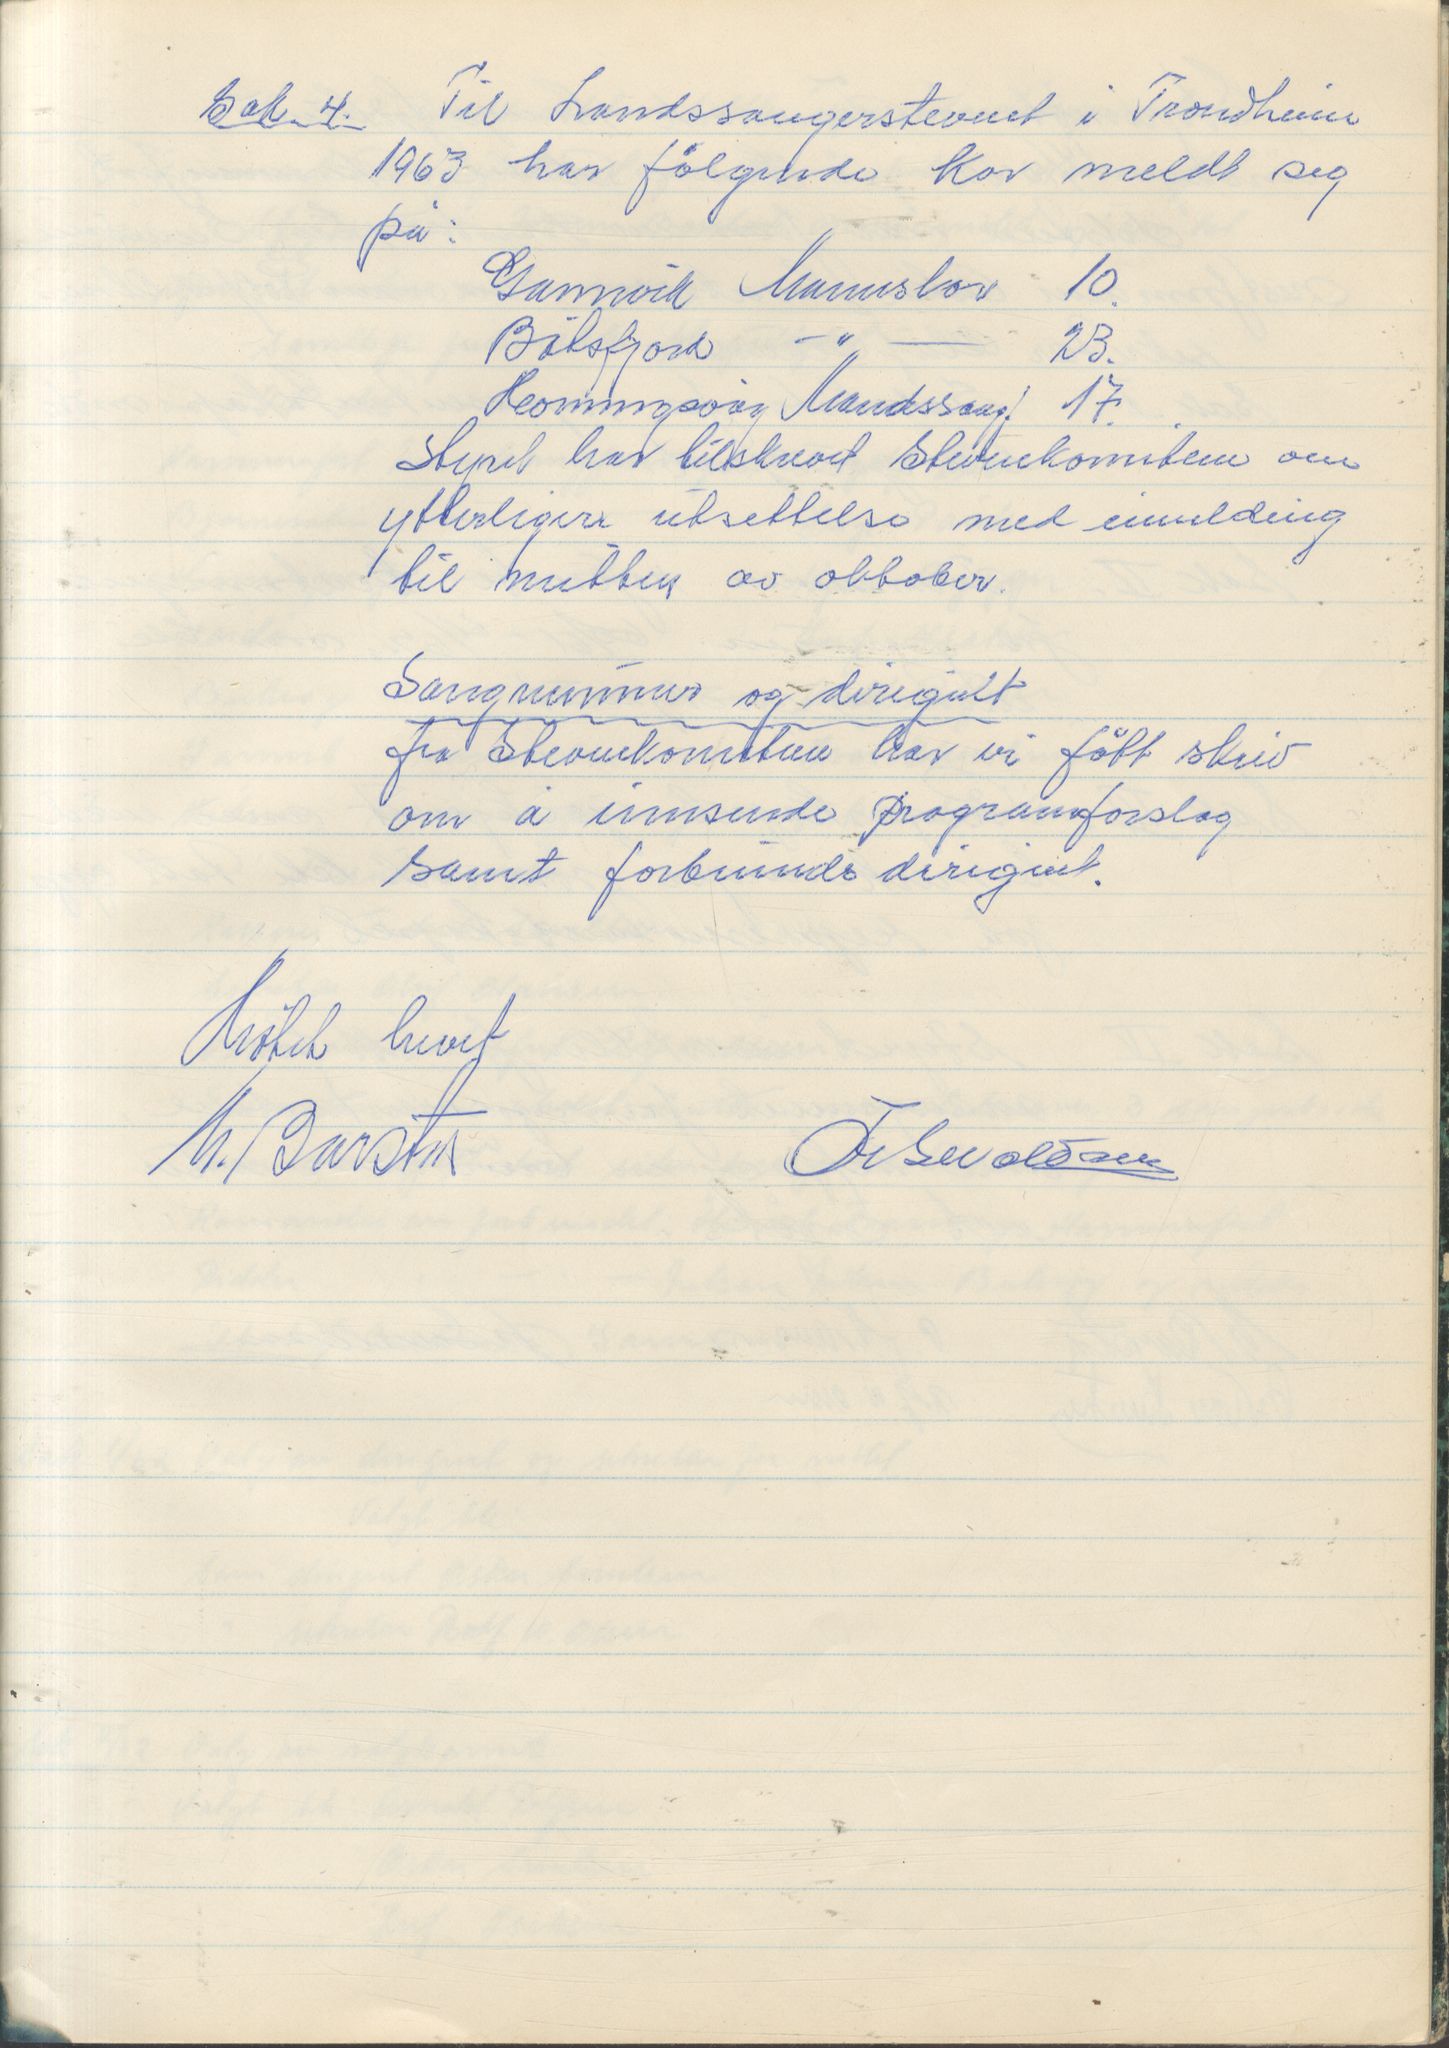 Sak 4. Til Landssangerstevnet i Trondheim
1963 har følgende kor meldt seg
på:
Gamvik Mannskor 10.
Båtsfjord -"- 23.
Honningsvåg Mandssangf. 17.
Styret har tilskrevet Stevnekomiteen om
ytterligere utsettelse med innmelding
til mitten av oktober.
Sangnummer og dirigent
fra Stevnekomiteen har vi fått skriv
om å innsende programforslag
samt forbunds dirigent.
Møtet hevet
M. Barsten